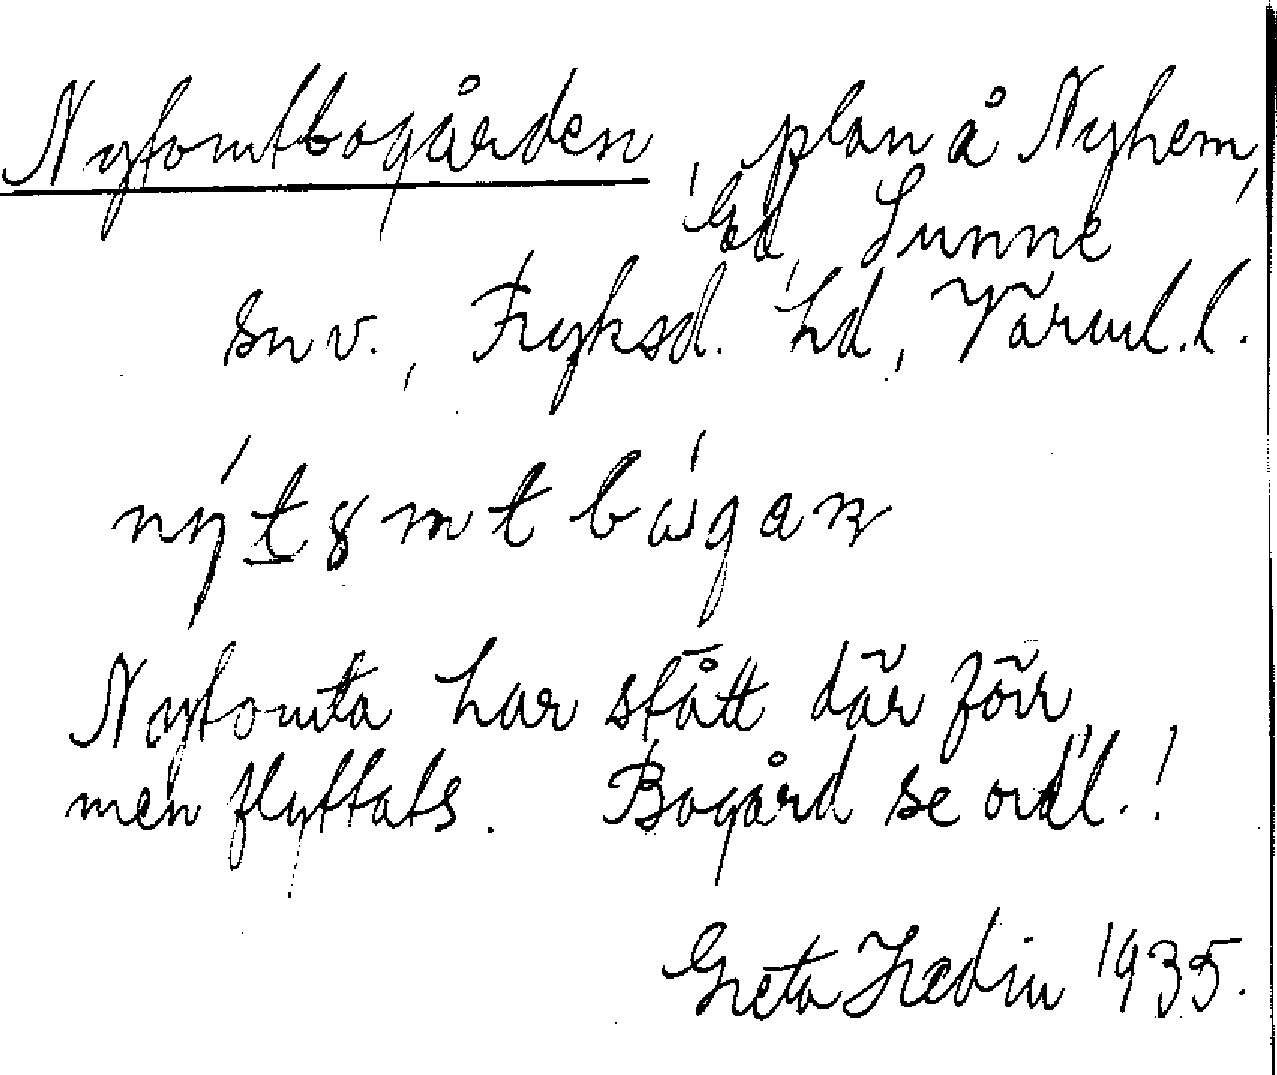 Nytomtbogården, plan å Nyhem,
Gd, Sunne
sn v., Fryksd. hd, Värml. l.
nýtomtbógaṇ
Nytomta har stått där förr,
men flyttats. Bogård se ordl.!
Greta Hedin 1935.